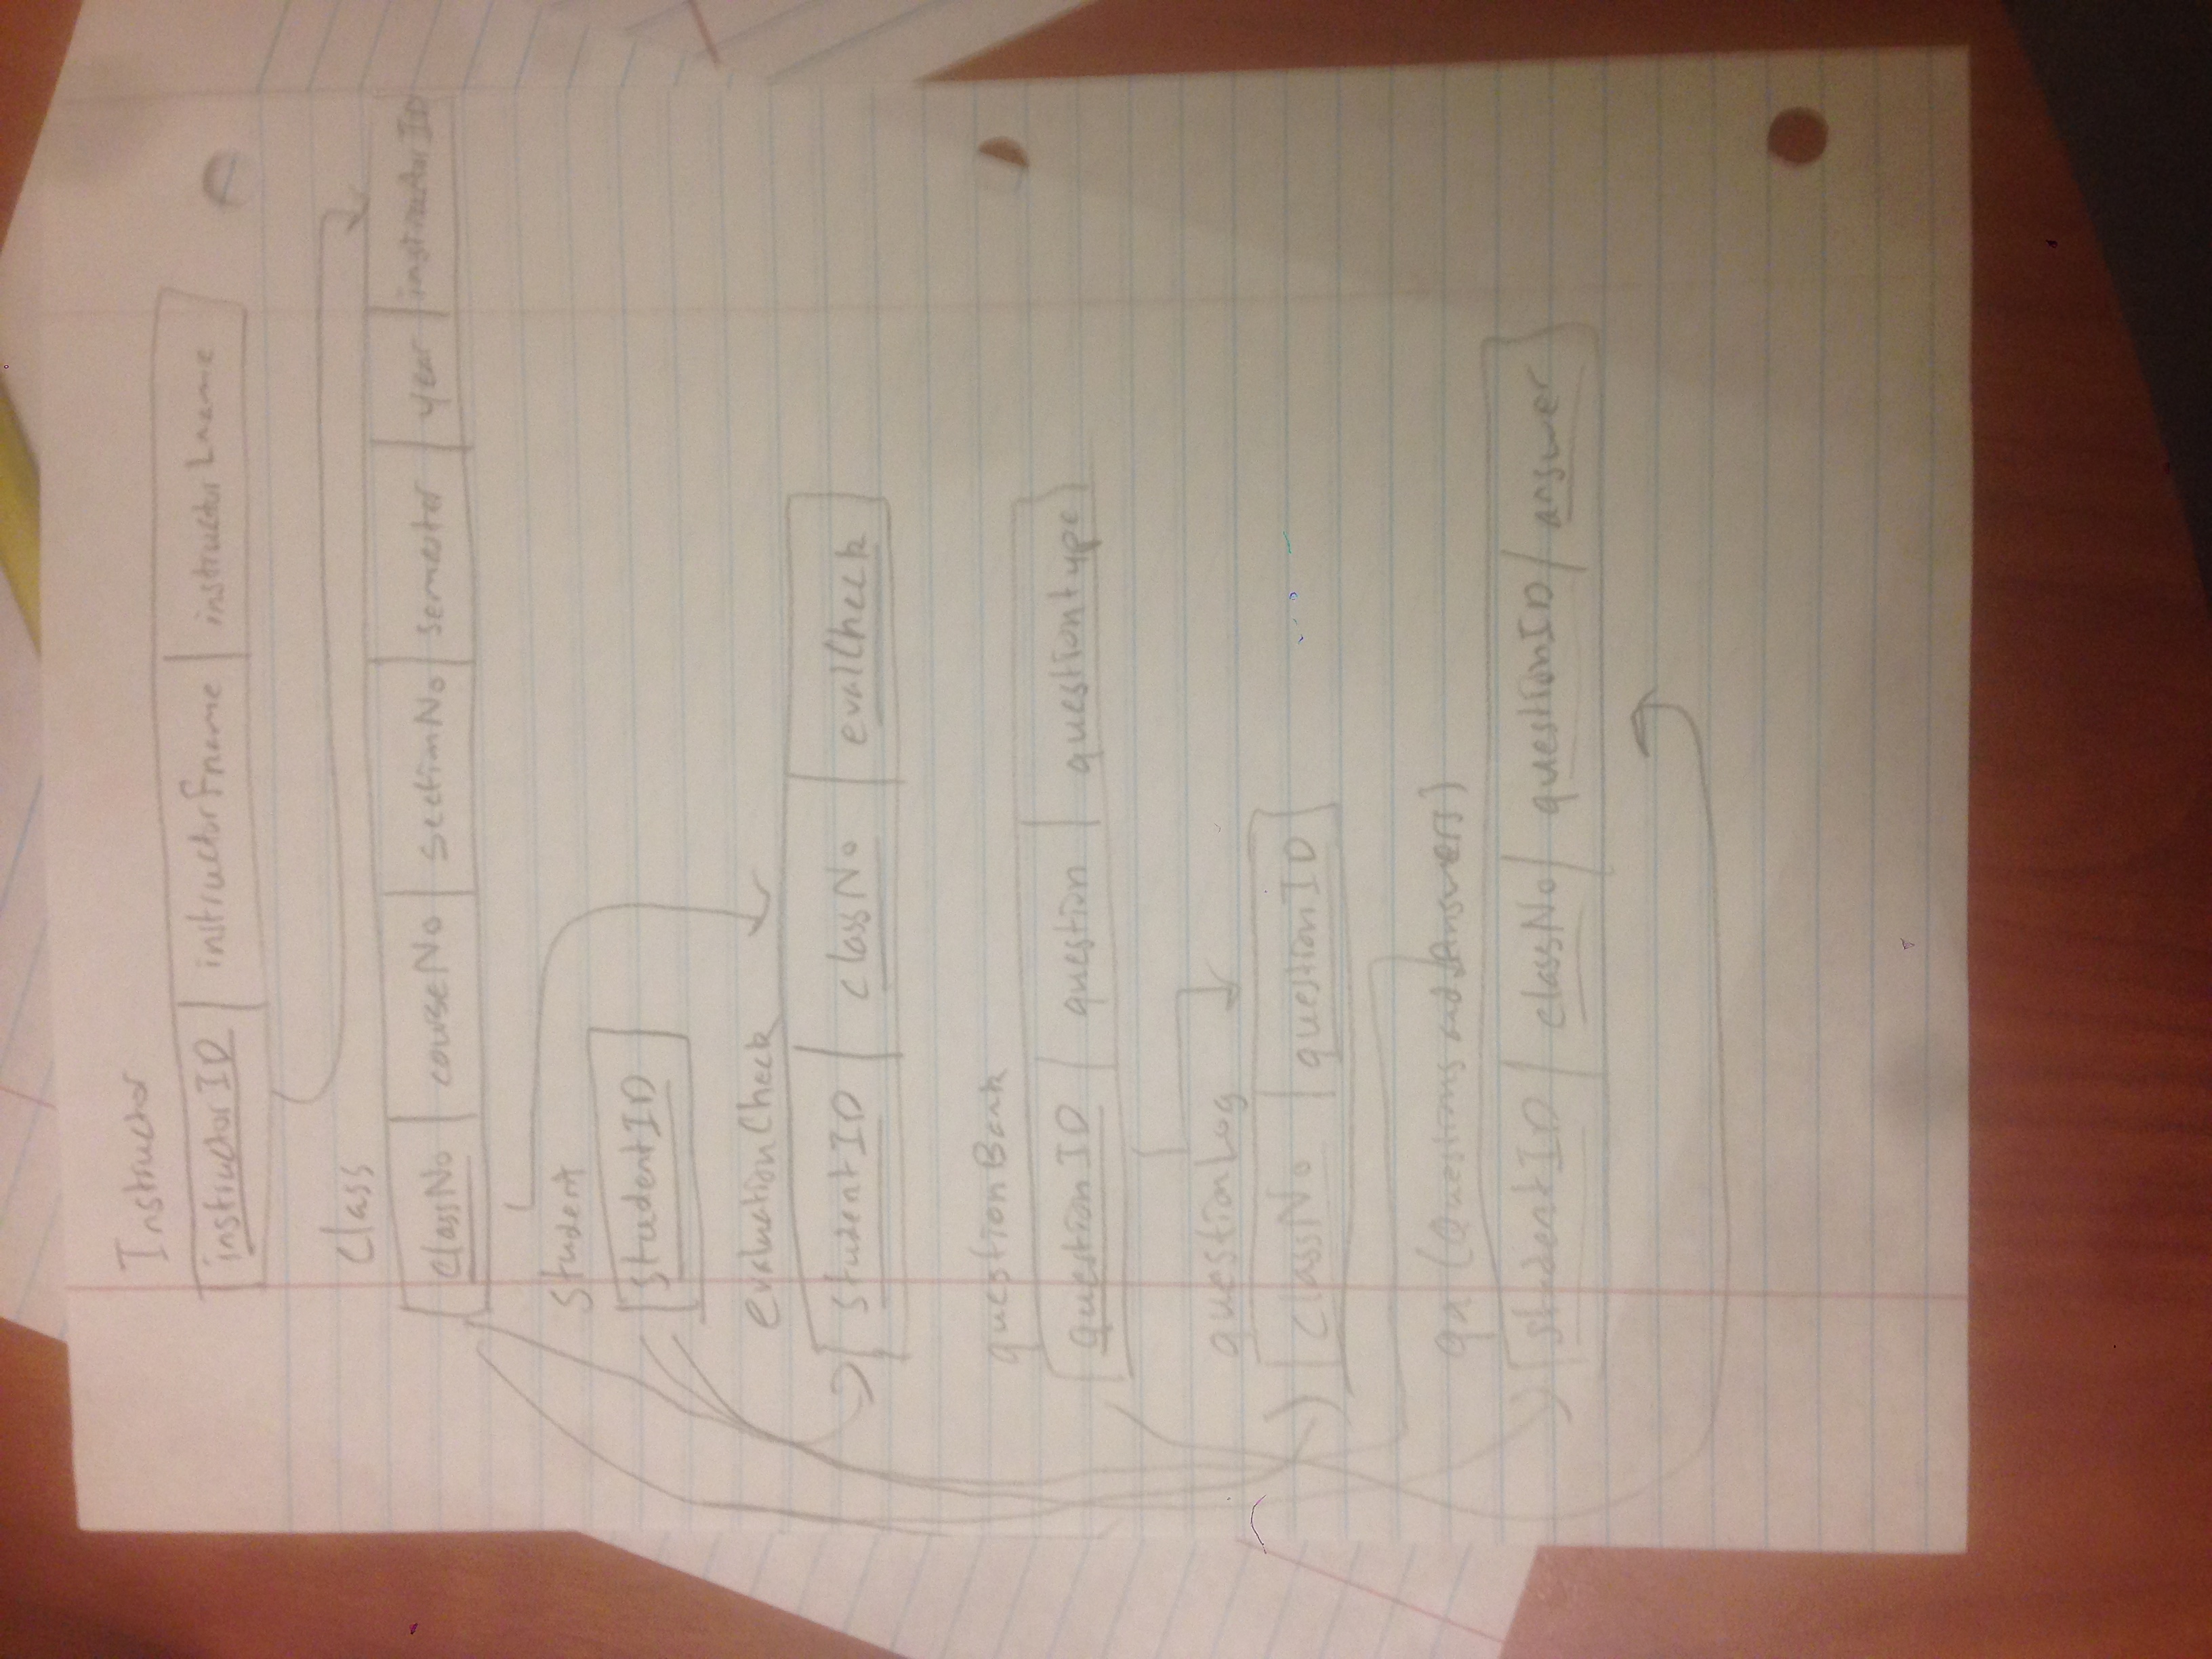 Instructor
instructorID instructorFname instructorLname
Class
classNo courseNo sectionNo semester year instructorID
Student
studentID
evaluationCheck
studentID classNo evalCheck
questionBank
questionID question questiontype
questionLog
classNo questionID
qa (Questions and Answers)
studentID classNo questionID answer